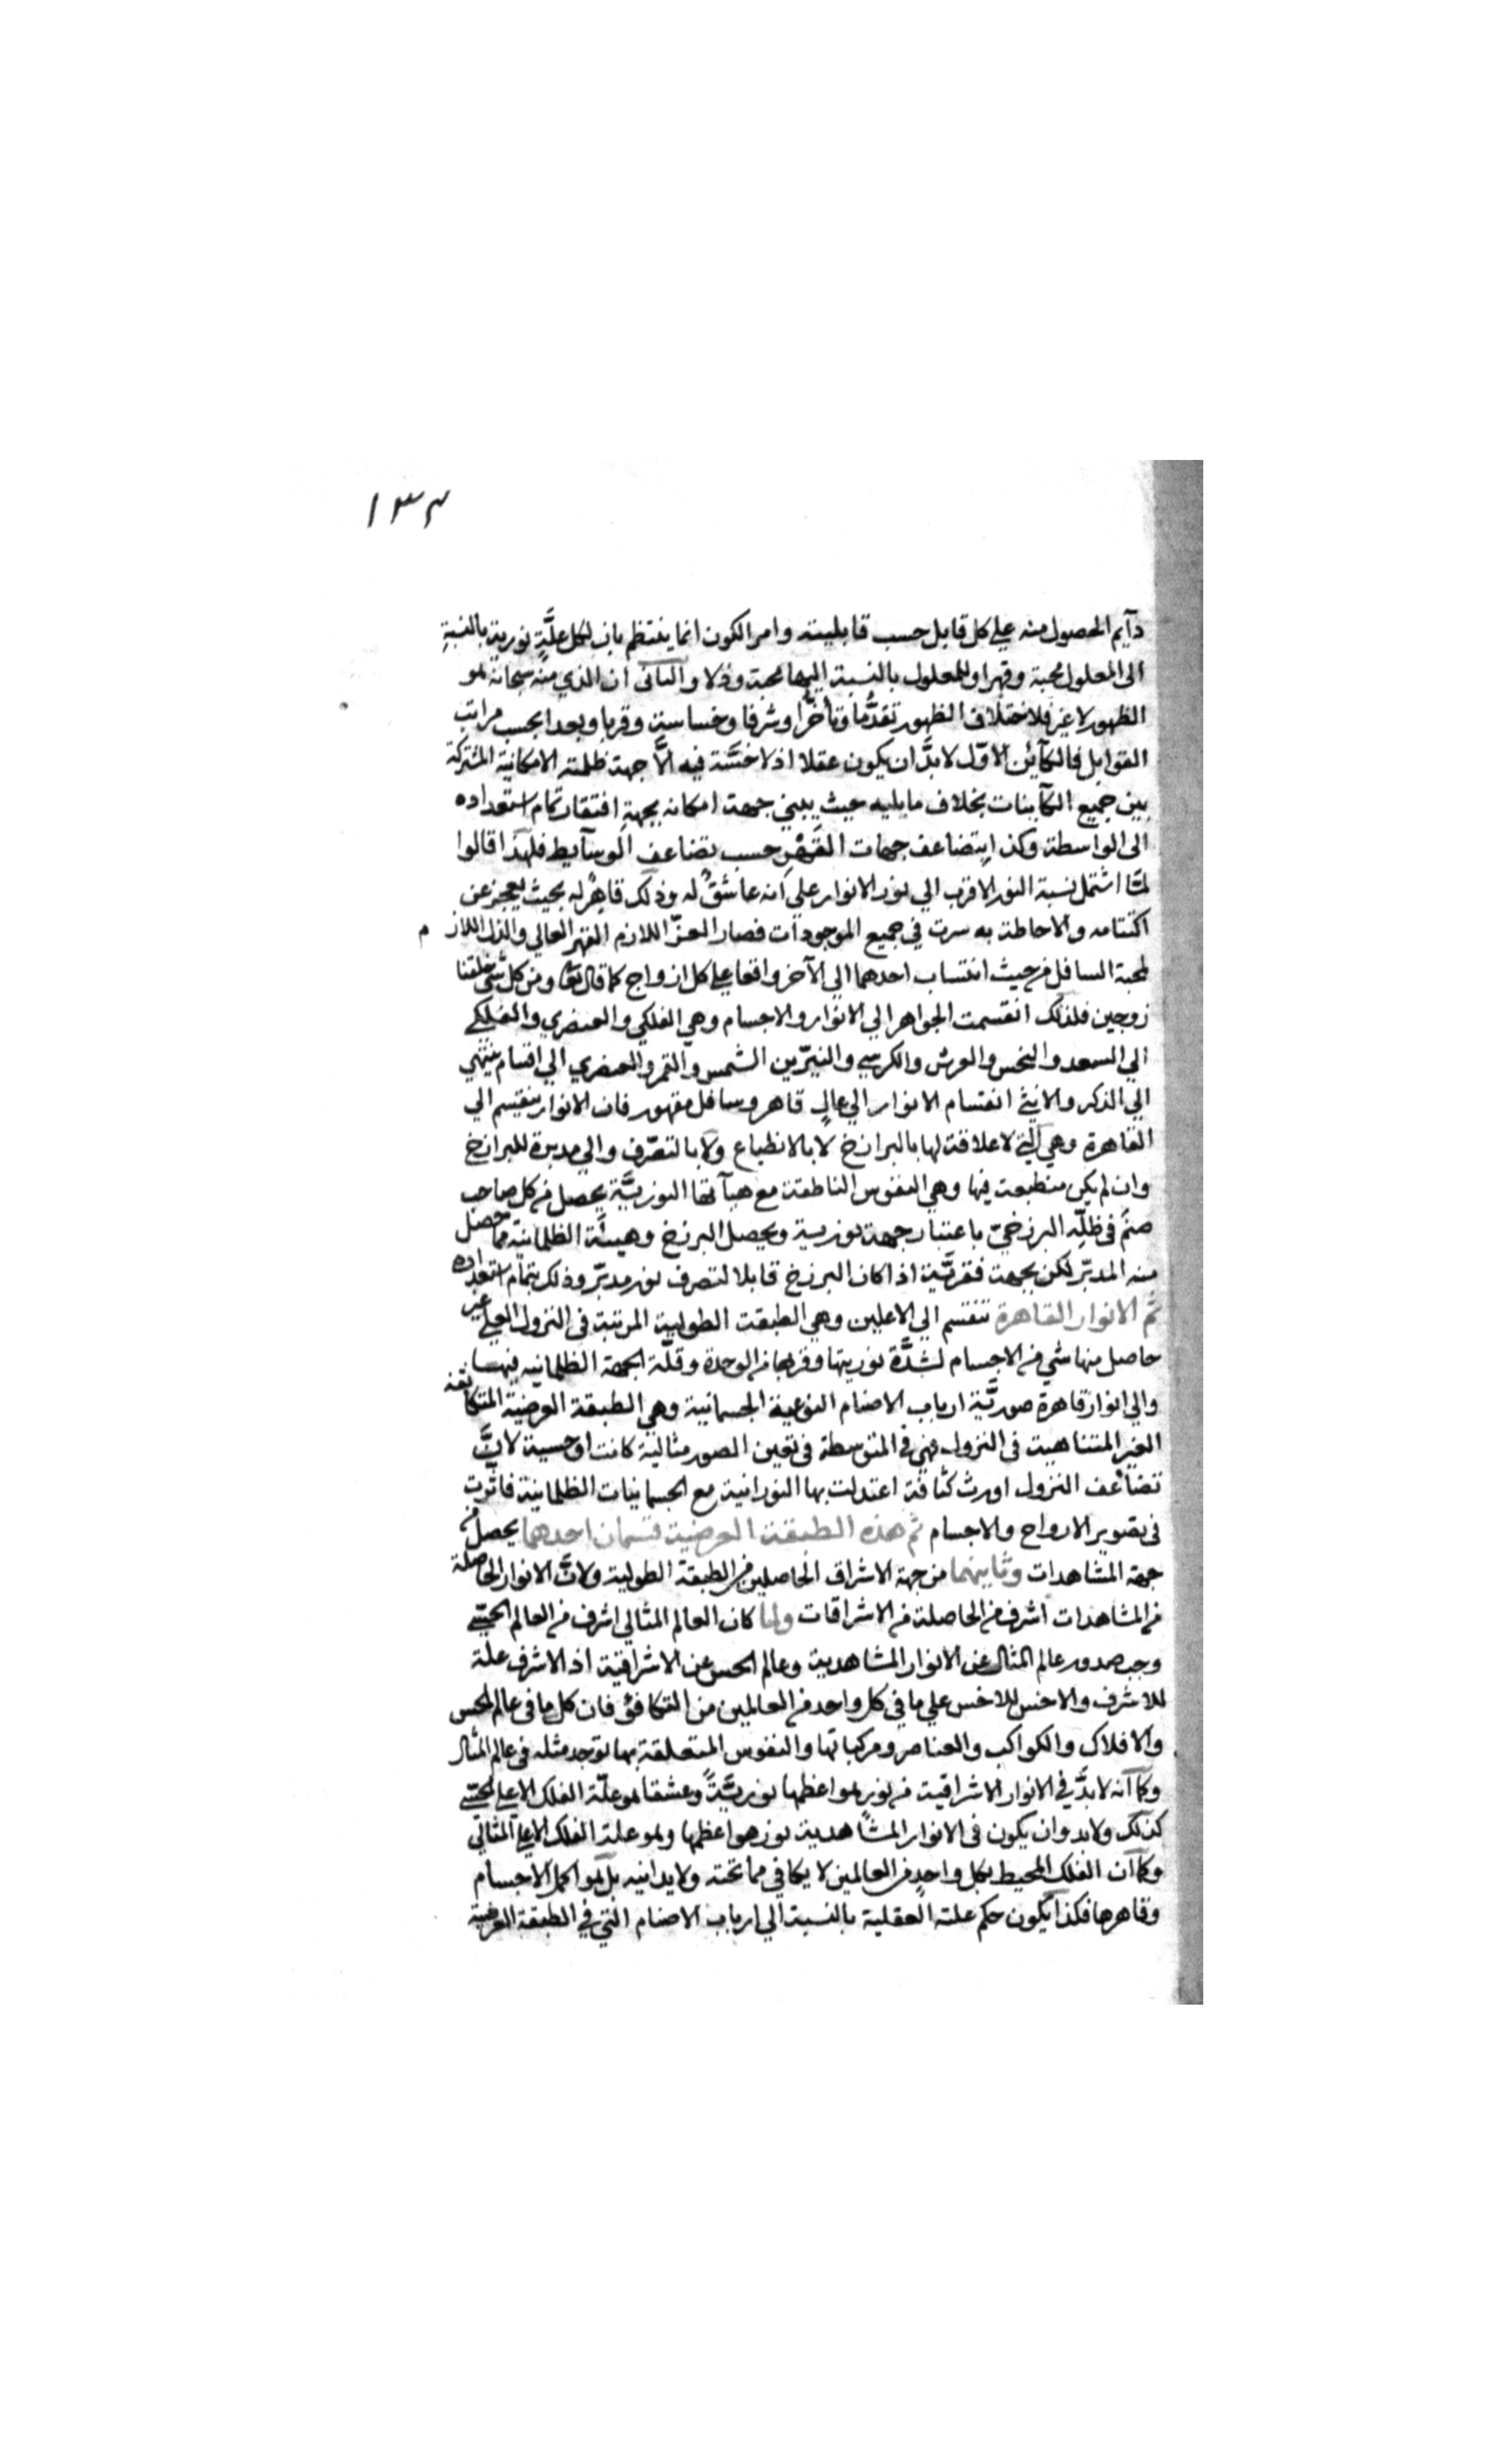 ١٣٤
دآيم الحصول منه علي كل قابل حسب قابليته وامر الكون انما ينتظم بان لكل علَّةٍ نورية بالنسبةِ
الى المعلول محبة وقهرا وللمعلول بالنسبة اليها محبة وذلا والثانى ان الذي منه سبحانه هو
الظهور لا غير فلاختلاف الظهور تقدُّما وتأخرًّا وشرفا وخساسة وقربا وبعدا بحسب مراتب
القوابل فالكآئن الاوّل لا بدَّ ان يكون عقلا اذ لا خسَّة فيه الَّا جهة ظلمته الامكانية المشتركة
بين جميع الكآينات بخلاف ما يليه حيث جهة امكانه بجهةِ افتقار تمام استعداده
الى الواسطة وكذا يتضاعف جهات حسب تضاعف الوسآيط فلهذا قالوا
لمَّا اشتمل نسبة النور الاقرب الي نور الانوار علي انه عاشقٌ له وذلك قاهرٌ له بحيث يعجز عن
اكتناهه والاحاطة به سرت في جميع الموجودات فصار العزّ اللازم القهر العالي والذل اللازم
لمحبة السافل من حيث انتساب احدهما الي الآخر واقعا علي كل ازواج كما قال تعا ومن كل شي خلقنا
زوجين فلذلك انقسمت الجواهر الي الانوار والاجسام وهي الفلكي والعنصري والفلكي
الي السعد والنحس والعرش والكرسي والنيّرين الشمس والقمر والعنصري الي اقسام ينتهي
الي الذكر والانثي انقسام الانوار الي عالٍ قاهر وسافل مقهور فان الانوار ينقسم الي
القاهرة وهي التي لا علاقة لها بالبرازخ لا بالانطباع ولا بالتصرّف والي مدبرة للبرازخ
وان لم يكن منطبعة فيها وهي النفوس الناطقة مع هيآتها النوريَّة يحصل من كل صاحب
صنم في ظلِّه البرزخيّ باعتبار جهة نورية ويحصل البرزخ وهيئَة الظلمانية مما حصل
منه المدبّر لكن بجهة فقريَّة اذا كان البرزخ قابلا لتصرف نور مدبّر وذلك بتمام استعداده
ثم الانوار القاهرة تنقسم الي الاعلين وهي الطبقة الطولية المرتبة في النزول العلي غير
حاصل منها شي من الاجسام لشدَّة نوريتها وقربها من الوحدة وقلَّة الجهة الظلمانيه فيها
والي انوار قاهرة صوريَّة ارباب الاصنام النوعية الجسمانية وهي الطبقة العرضية المتكافئة
الغير المتناهية في النزول فهي المتوسطة في تعين الصور مثالية كانت او حسية لانَّ
تضاعف النزول اورث كثافة اعتدلت بها النورانية مع الجسمانيات الظلمانية فاثرت
في تصوير الارواح والاجسام ثم هذه الطبقة العرضية قسمان احدهما يحصل من
جهة المشاهدات وثانيهما من جهة الاشراق الحاصلين من الطبقة الطولية ولانَّ الانوار الحاصلة
من المشاهدات اشرف من الحاصلة من الاشراقات ولما كان العالم المثالي اشرف من العالم الحسّي
وجب صدور عالم المثال عن الانوار المشاهدية وعالم الحس عن الاشراقية اذ الاشرف علة
للاشرف والاخس للاخس علي ما في كل واحد من العالمين من التكافؤ فان كل ما في عالم الحس
والافلاك والكواكب والعناصر ومركباتها والنفوس المتعلقة بها توجد مثله في عالم المثال
وكما انه لا بدَّ في الانوار الاشراقية من نور هو اعظمها نوريَّةً وعشقا هو علّة الفلك الاعلي الحسّي
كذلك ولا بد وان يكون في الانوار المشاهدية نور هو اعظمها وهو علة الفلك الاعلي المثالي
وكما ان الفلك المحيط بكل واحدٍ من العالمين لا يكافي مما تحته ولا يدانيه بل هو اكمل الاجسام
وقاهرها فكذا يكون حكم علته العقلية بالنسبة الي ارباب الاصنام التي في الطبقة العرضية